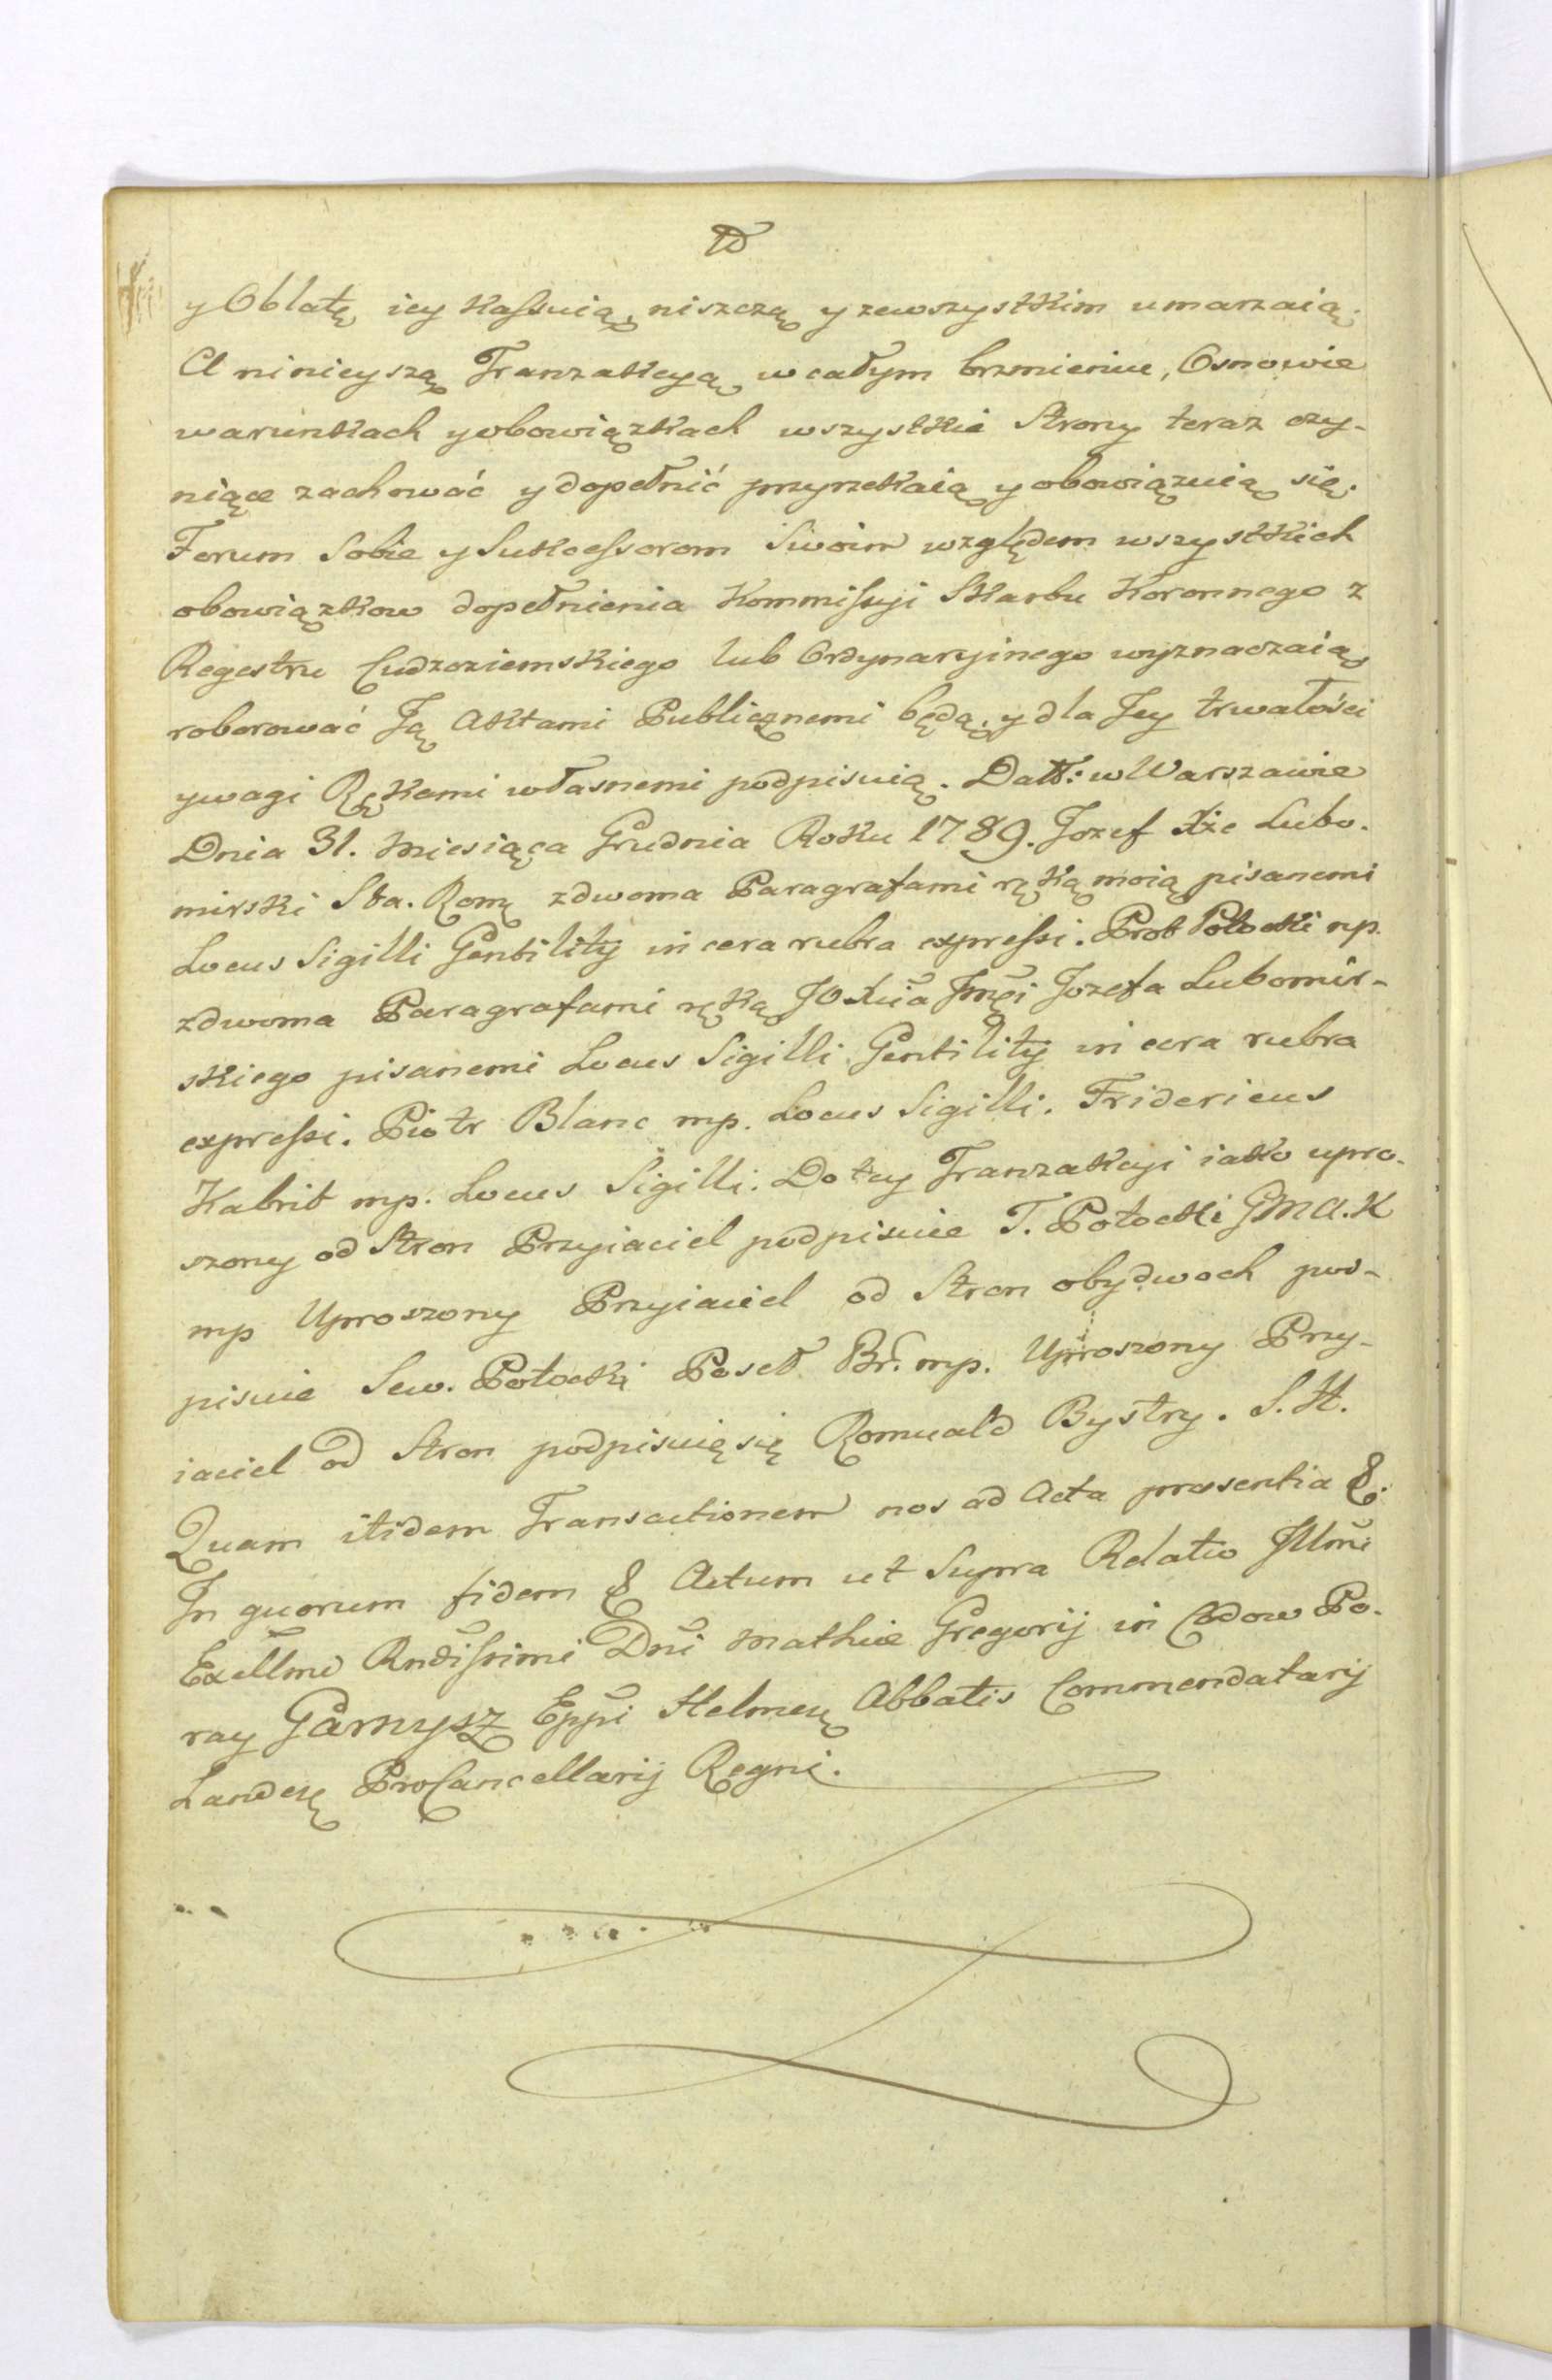 y Oblatę iey kassuią, niszczą y zewszystkim umarzaią.
A ninieyszą Tranzakcyą w całym brzmieniu, Osnowie
warunkach y obowiązkach wszystkie Strony teraz czy-
niące zachować y dopełnić przyrzekaią y obowiązuią się.
Forum Sobie y Sukcessorom Swoim względem wszystkich
obowiązkow dopełnienia Kommissyi Skarbu Koronnego z
Regestru Cudzoziemskiego lub Ordynaryinego wyznaczaią
roborować Ją Aktami Publicznemi będą, y dla Jey trwałości
y wagi Rękami własnemi podpisuią. Datt: w Warszawie
Dnia 31. Miesiąca Grudnia Roku 1789. Jozef Xże Lubo-
mirski Sta. Romę z dwoma Paragrafami ręką moią pisanemi
Locus Sigilli Gentilitij in cera rubra expressi. Prot Potocki mp.
z dwoma Paragrafami ręką JO Xcia Jmci Jozefa Lubomir-
skiego pisanemi Locus Sigilli Gentilitij in cera rubra
expressi. Piotr Blanc mp. Locus Sigilli. Fridericus
Kabrit mp. Locus Sigilli. Do tey Tranzakcyi iako upro-
szony od Stron Przyiaciel podpisuie T. Potocki GMA.K
mp Uproszony Przyiaciel od Stron obydwoch pod-
pisuie Sew. Potocki Poseł Br. mp. Uproszony Przy-
iaciel od Stron podpisuię się Romuald Bystry. S. H.
Quam itidem Transactionem nos ad Acta praesentia &.
In quorum fidem & Actum ut Supra Relatio Illmi
Excellmi Rndissimi Dni Mathiae Gregorij in Codow Po-
ray Garnysz Eppi Helmeñ Abbatis Commendatarij
Landeñ ProCancellarij Regni.